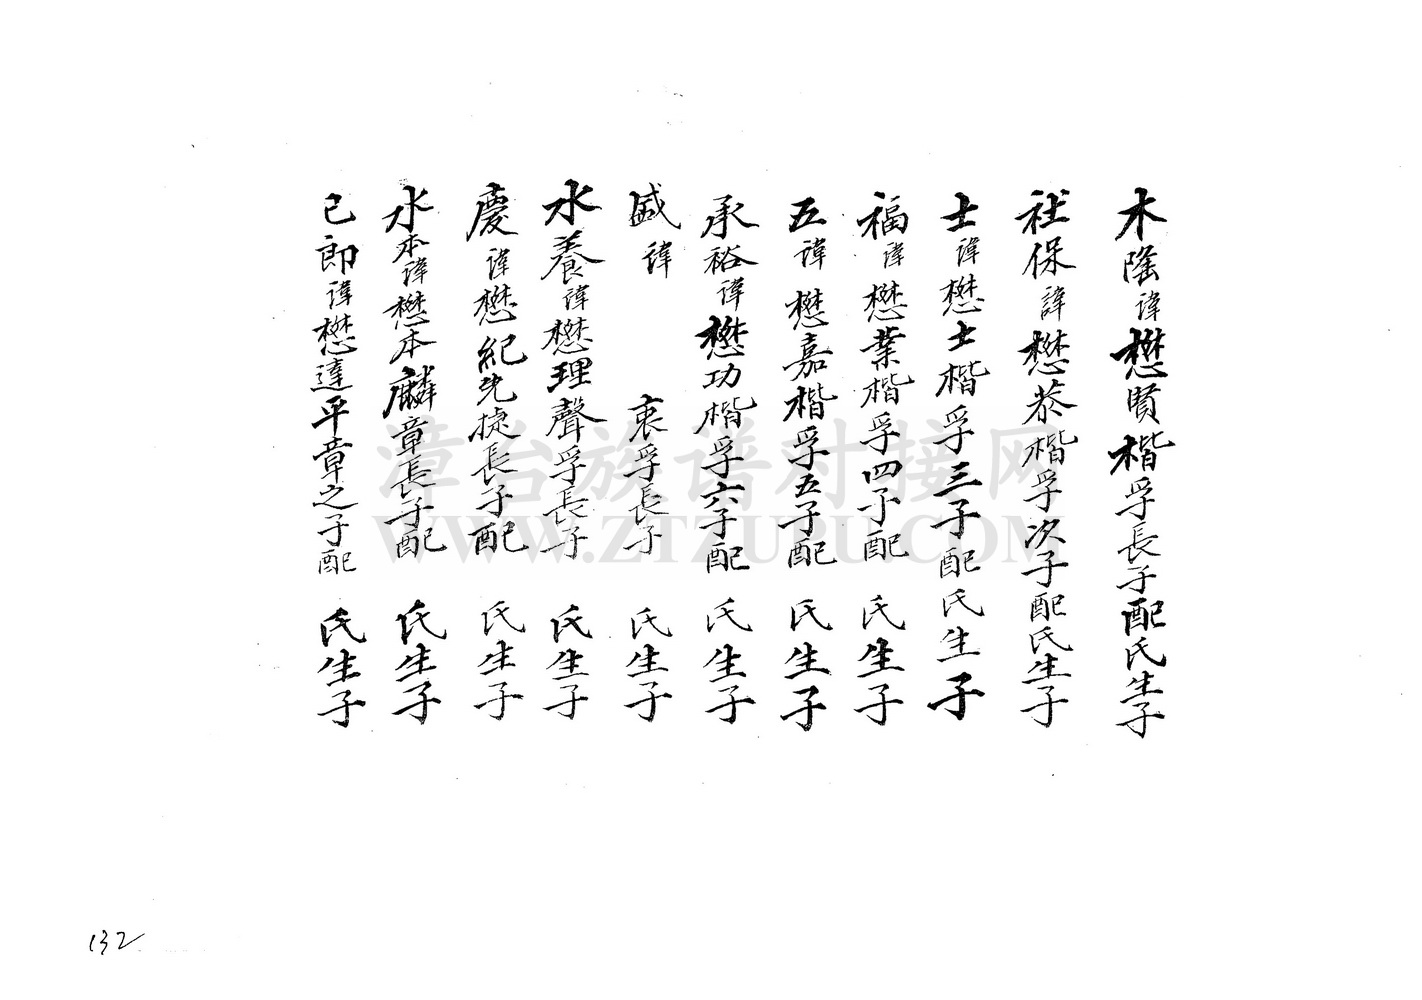 木隆諱懋賢楷孚長子配氏生子
社保諱懋恭楷孚次子配氏生子
士諱懋士楷孚三子配氏生子
福諱懋業楷孚四子配 氏生子
五諱懋嘉楷孚五子配 氏生子
承裕諱懋功楷孚六子配 氏生子
盛諱 衷孚長子 氏生子
水養諱懋理聲孚長子 氏生子
慶諱懋紀先捷長子配 氏生子
水本諱懋本麟章長子配 氏生子
已郎諱懋達平章之子配 氏生子
漳台族谱对接网
WWW.ZTZUPU.COM
132